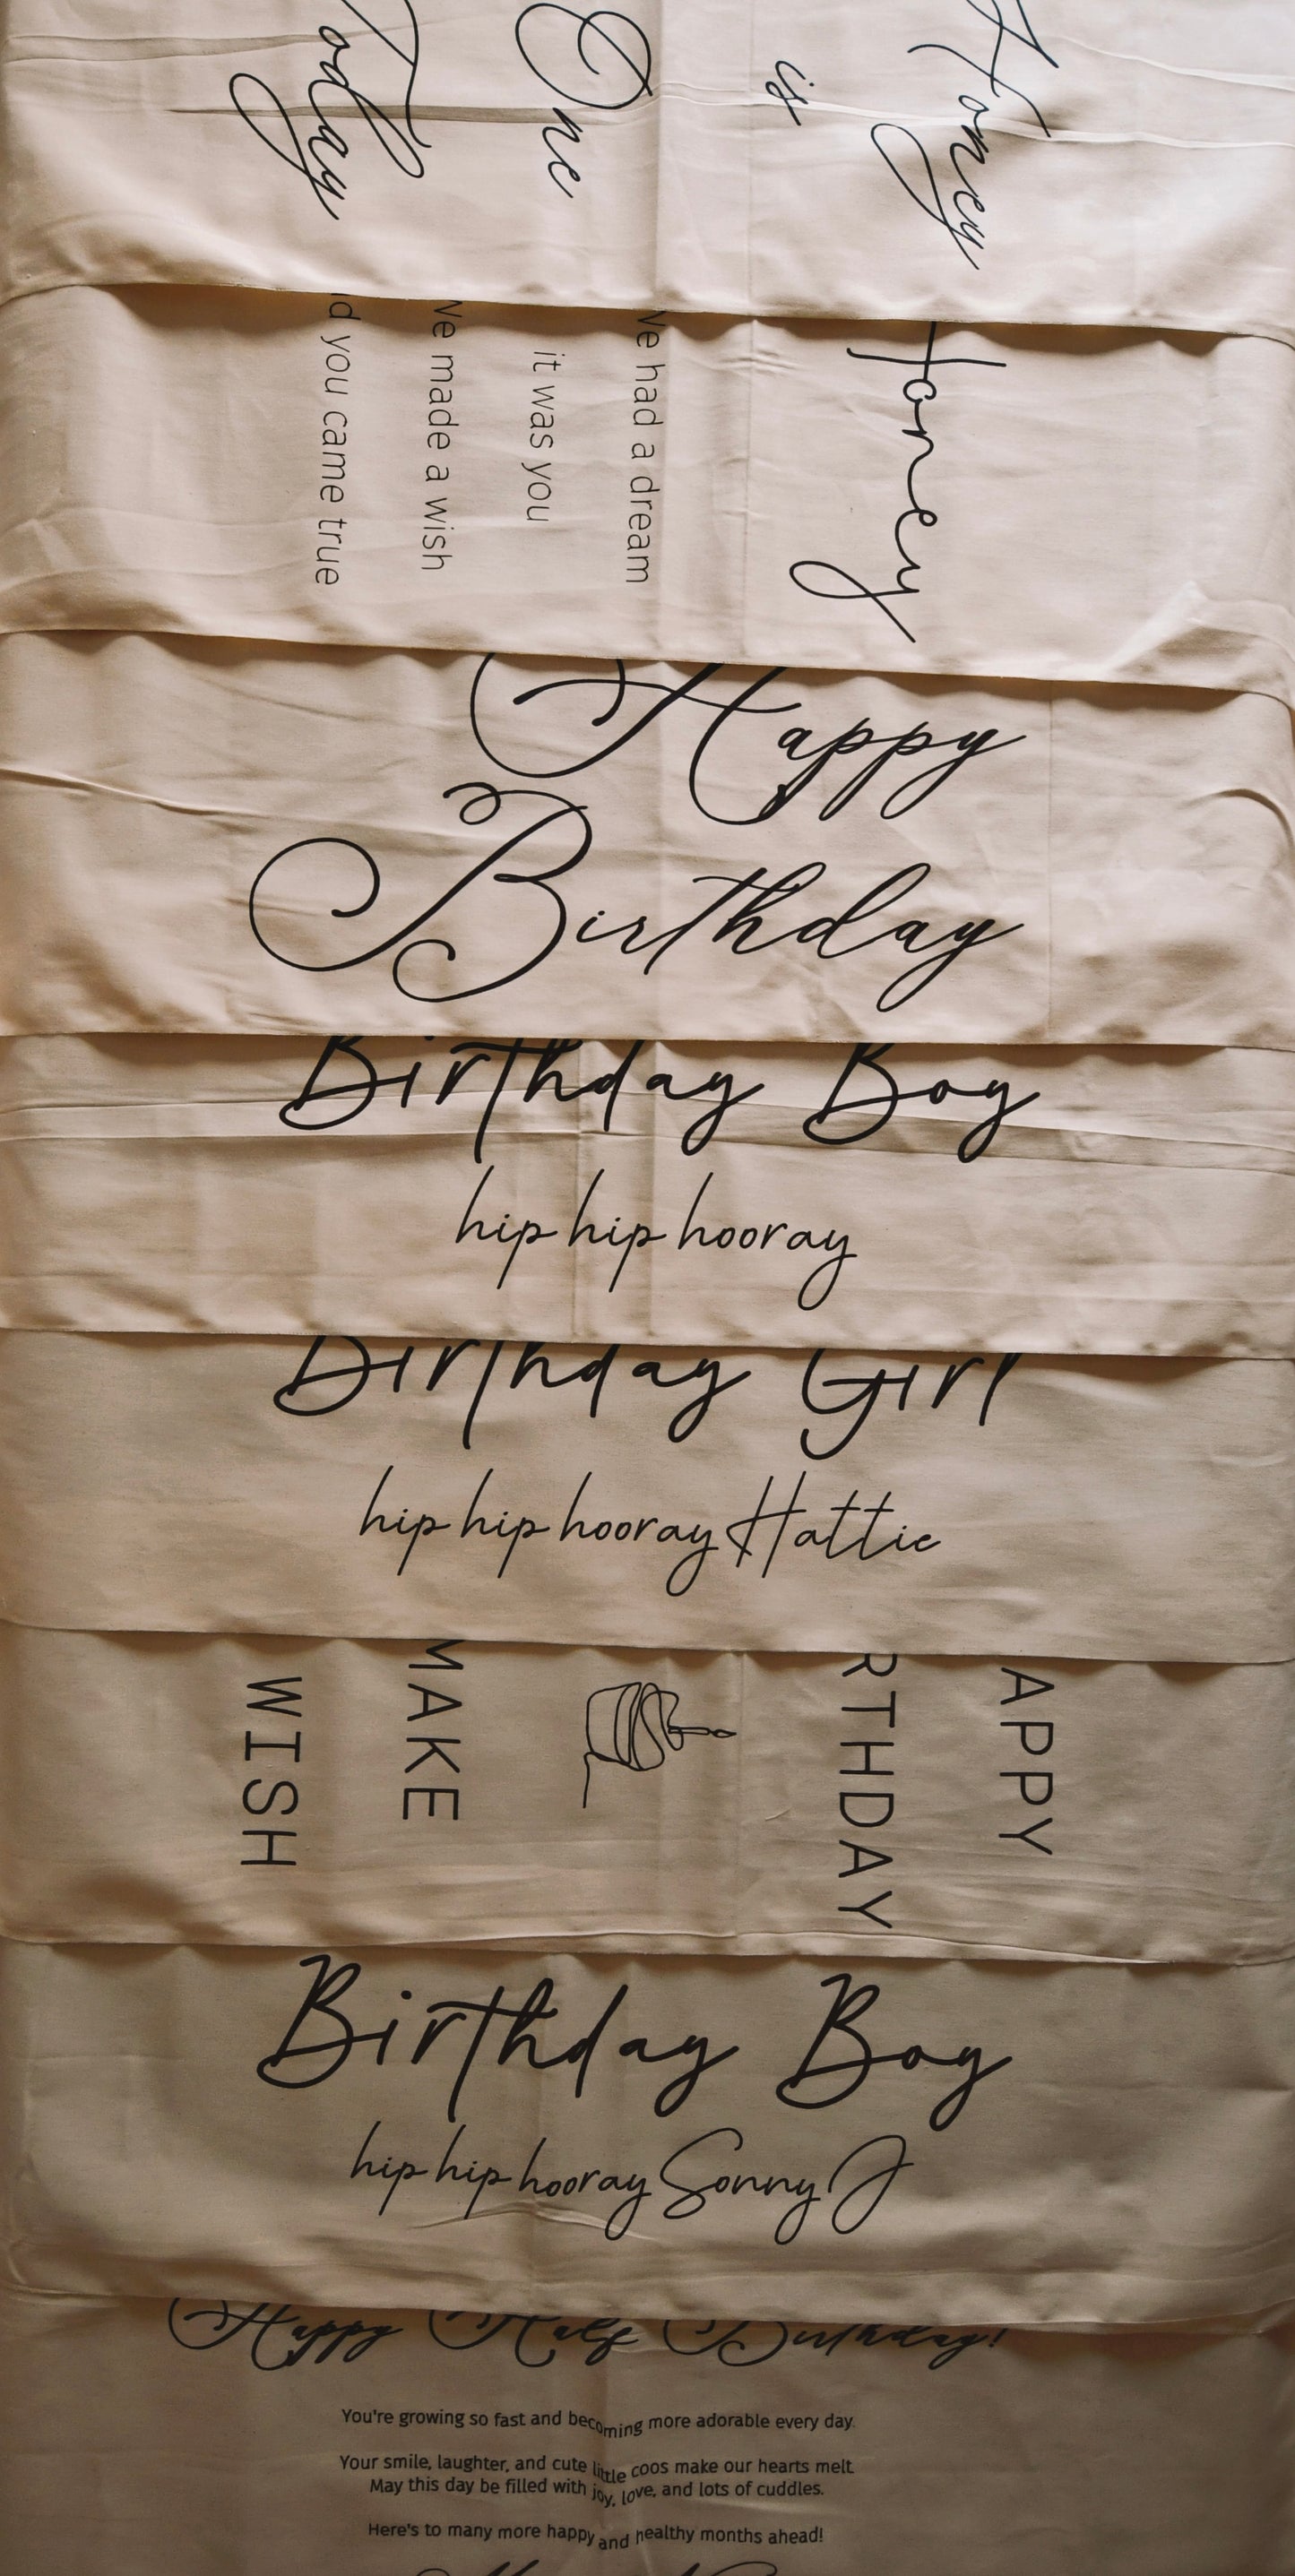 Honey
is
One
Today
Honey
ve had a dream
it was you
ve made a wish
d you came true
Happy
Birthday
Birthday Boy
hip hip hooray
Birthday Girl
hip hip hooray Hattie
APPY
RTHDAY
MAKE
WISH
Birthday Boy
hip hip hooray Sonny J
Happy Half Birthday!
You're growing so fast and becoming more adorable every day.
Your smile, laughter, and cute little coos make our hearts melt.
May this day be filled with joy, love, and lots of cuddles.
Here's to many more happy and healthy months ahead!